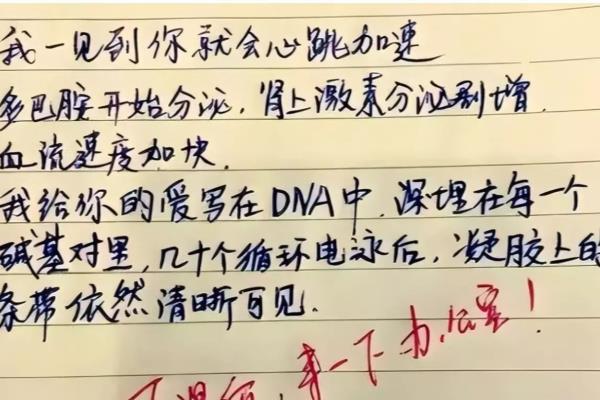 我一见到你就会心跳加速
多巴胺开始分泌,肾上激素分泌剧增.
血流速度加快.
我给你的爱写在DNA中,深埋在每一个
碱基对里,几十个循环电泳后,凝胶上的
条带依然清晰可见.
来一下办公室!